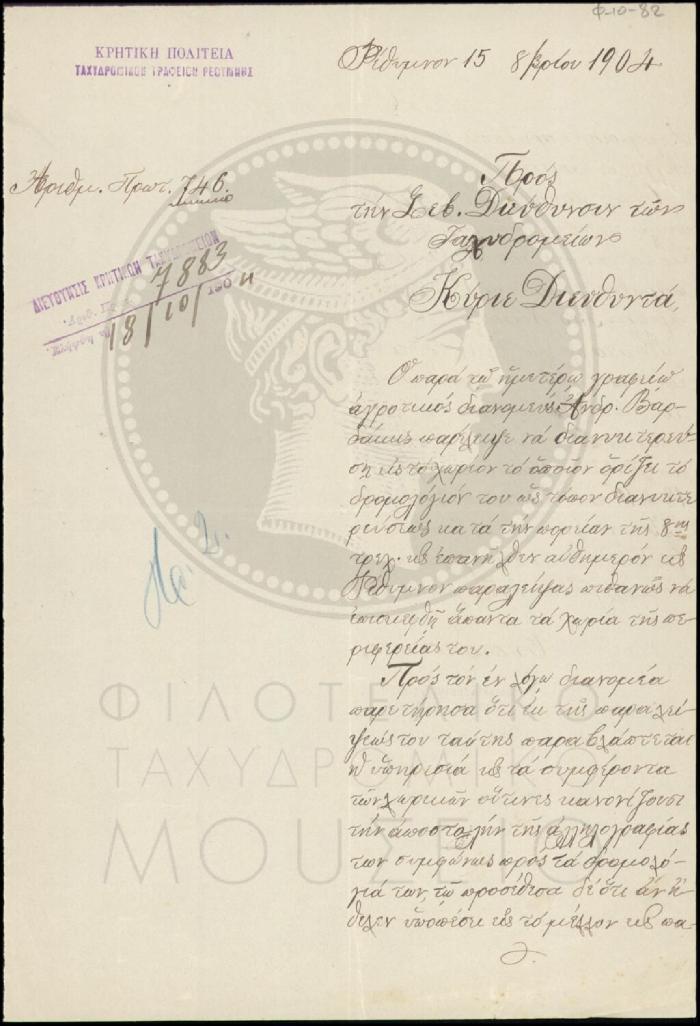 Φ-10-82
ΚΡΗΤΙΚΗ ΠΟΛΙΤΕΙΑ
ΤΑΧΥΔΡΟΜΙΚΟΝ ΓΡΑΦΕΙΟΝ ΡΕΘΥΜΝΗΣ
Ρέθυμνον 15 8βρίου 1904
Αριθμ. Πρωτ. 746.
Πρός
τὴν Σεβ. Διεύθυνσιν τῶν
Ταχυδρομείων
ΔΙΕΥΘΥΝΣΙΣ ΚΡΗΤΙΚΩΝ ΤΑΧΥΔΡΟΜΕΙΩΝ
7883
18/10/
Κύριε Διευθυντά,
Ὁ παρὰ τῷ ἡμετέρῳ γραφείῳ
ἀγροτικὸς διανομεὺς Ἀνδρ. Βαρ-
δάκης παρέλειψε νὰ διανυκτερεύ-
σῃ εἰς τὸ χωρίον τὸ ὁποῖον ὁρίζει τὸ
δρομολόγιόν του ὡς τόπον διανυκτε
ρεύσεως κατὰ τὴν πορείαν τῆς 8ης
τρεχ. καὶ ἐπανῆλθεν αὐθημερὸν εἰς
Ρέθυμνον παραλείψας πιθανῶς νὰ
ἐπισκεφθῇ ἅπαντα τὰ χωρία τῆς πε
ριφερείας του.
Πρὸς τὸν ἐν λόγῳ διανομέα
παρετήρησα ὅτι ἐκ τῆς παραλεί
ψεώς του ταύτης παραβλάπτεται
ἡ ὑπηρεσία καὶ τὰ συμφέροντα
τῶν χωρικῶν οἵτινες κανονίζουσι
τὴν ἀποστολὴν τῆς ἀλληλογραφίας
των συμφώνως πρὸς τὰ δρομολό-
γιά των, τῷ προσέθεσα δὲ ὅτι ἂν ἤ-
θελεν ὑποπέσει εἰς τὸ μέλλον εἰς πα-
ΦΙΛΟΤΕΛΙΚΟ
ΤΑΧΥΔΡΟΜΙΚΟ
ΜΟΥΣΕΙΟ